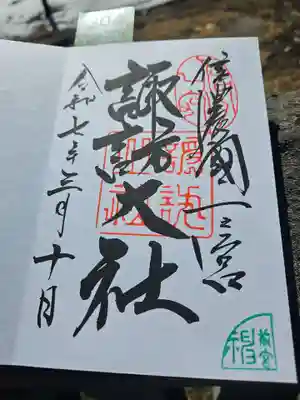 信濃國一之宮
諏訪大社
令和七年三月十日
諏訪
大社